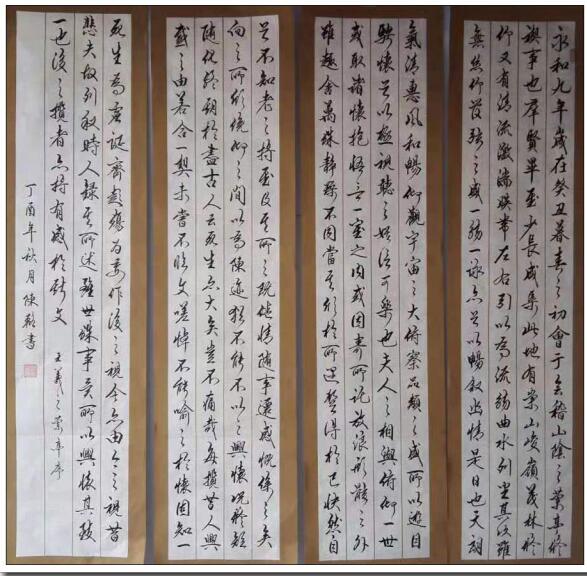 永和九年歲在癸丑暮春之初會于會稽山陰之蘭亭修
禊事也群賢畢至少長咸集此地有崇山峻嶺茂林修
竹又有清流激湍映帶左右引以為流觴曲水列坐其次雖
無絲竹管弦之盛一觴一詠亦足以暢敘幽情是日也天朗
氣清惠風和暢仰觀宇宙之大俯察品類之盛所以遊目
騁懷足以極視聽之娛信可樂也夫人之相與俯仰一世
或取諸懷抱悟言一室之內或因寄所託放浪形骸之外
雖趣舍萬殊靜躁不同當其欣於所遇暫得於己快然自
足不知老之將至及其所之既倦情隨事遷感慨係之矣
向之所欣俛仰之間以為陳迹猶不能不以之興懷況修短
隨化終期於盡古人云死生亦大矣豈不痛哉每攬昔人興
感之由若合一契未嘗不臨文嗟悼不能喻之於懷固知一
死生為虛誕齊彭殤為妄作後之視今亦由今之視昔
悲夫故列敘時人錄其所述雖世殊事異所以興懷其致
一也後之攬者亦將有感於斯文 王羲之蘭亭序
丁酉年秋月陳
書